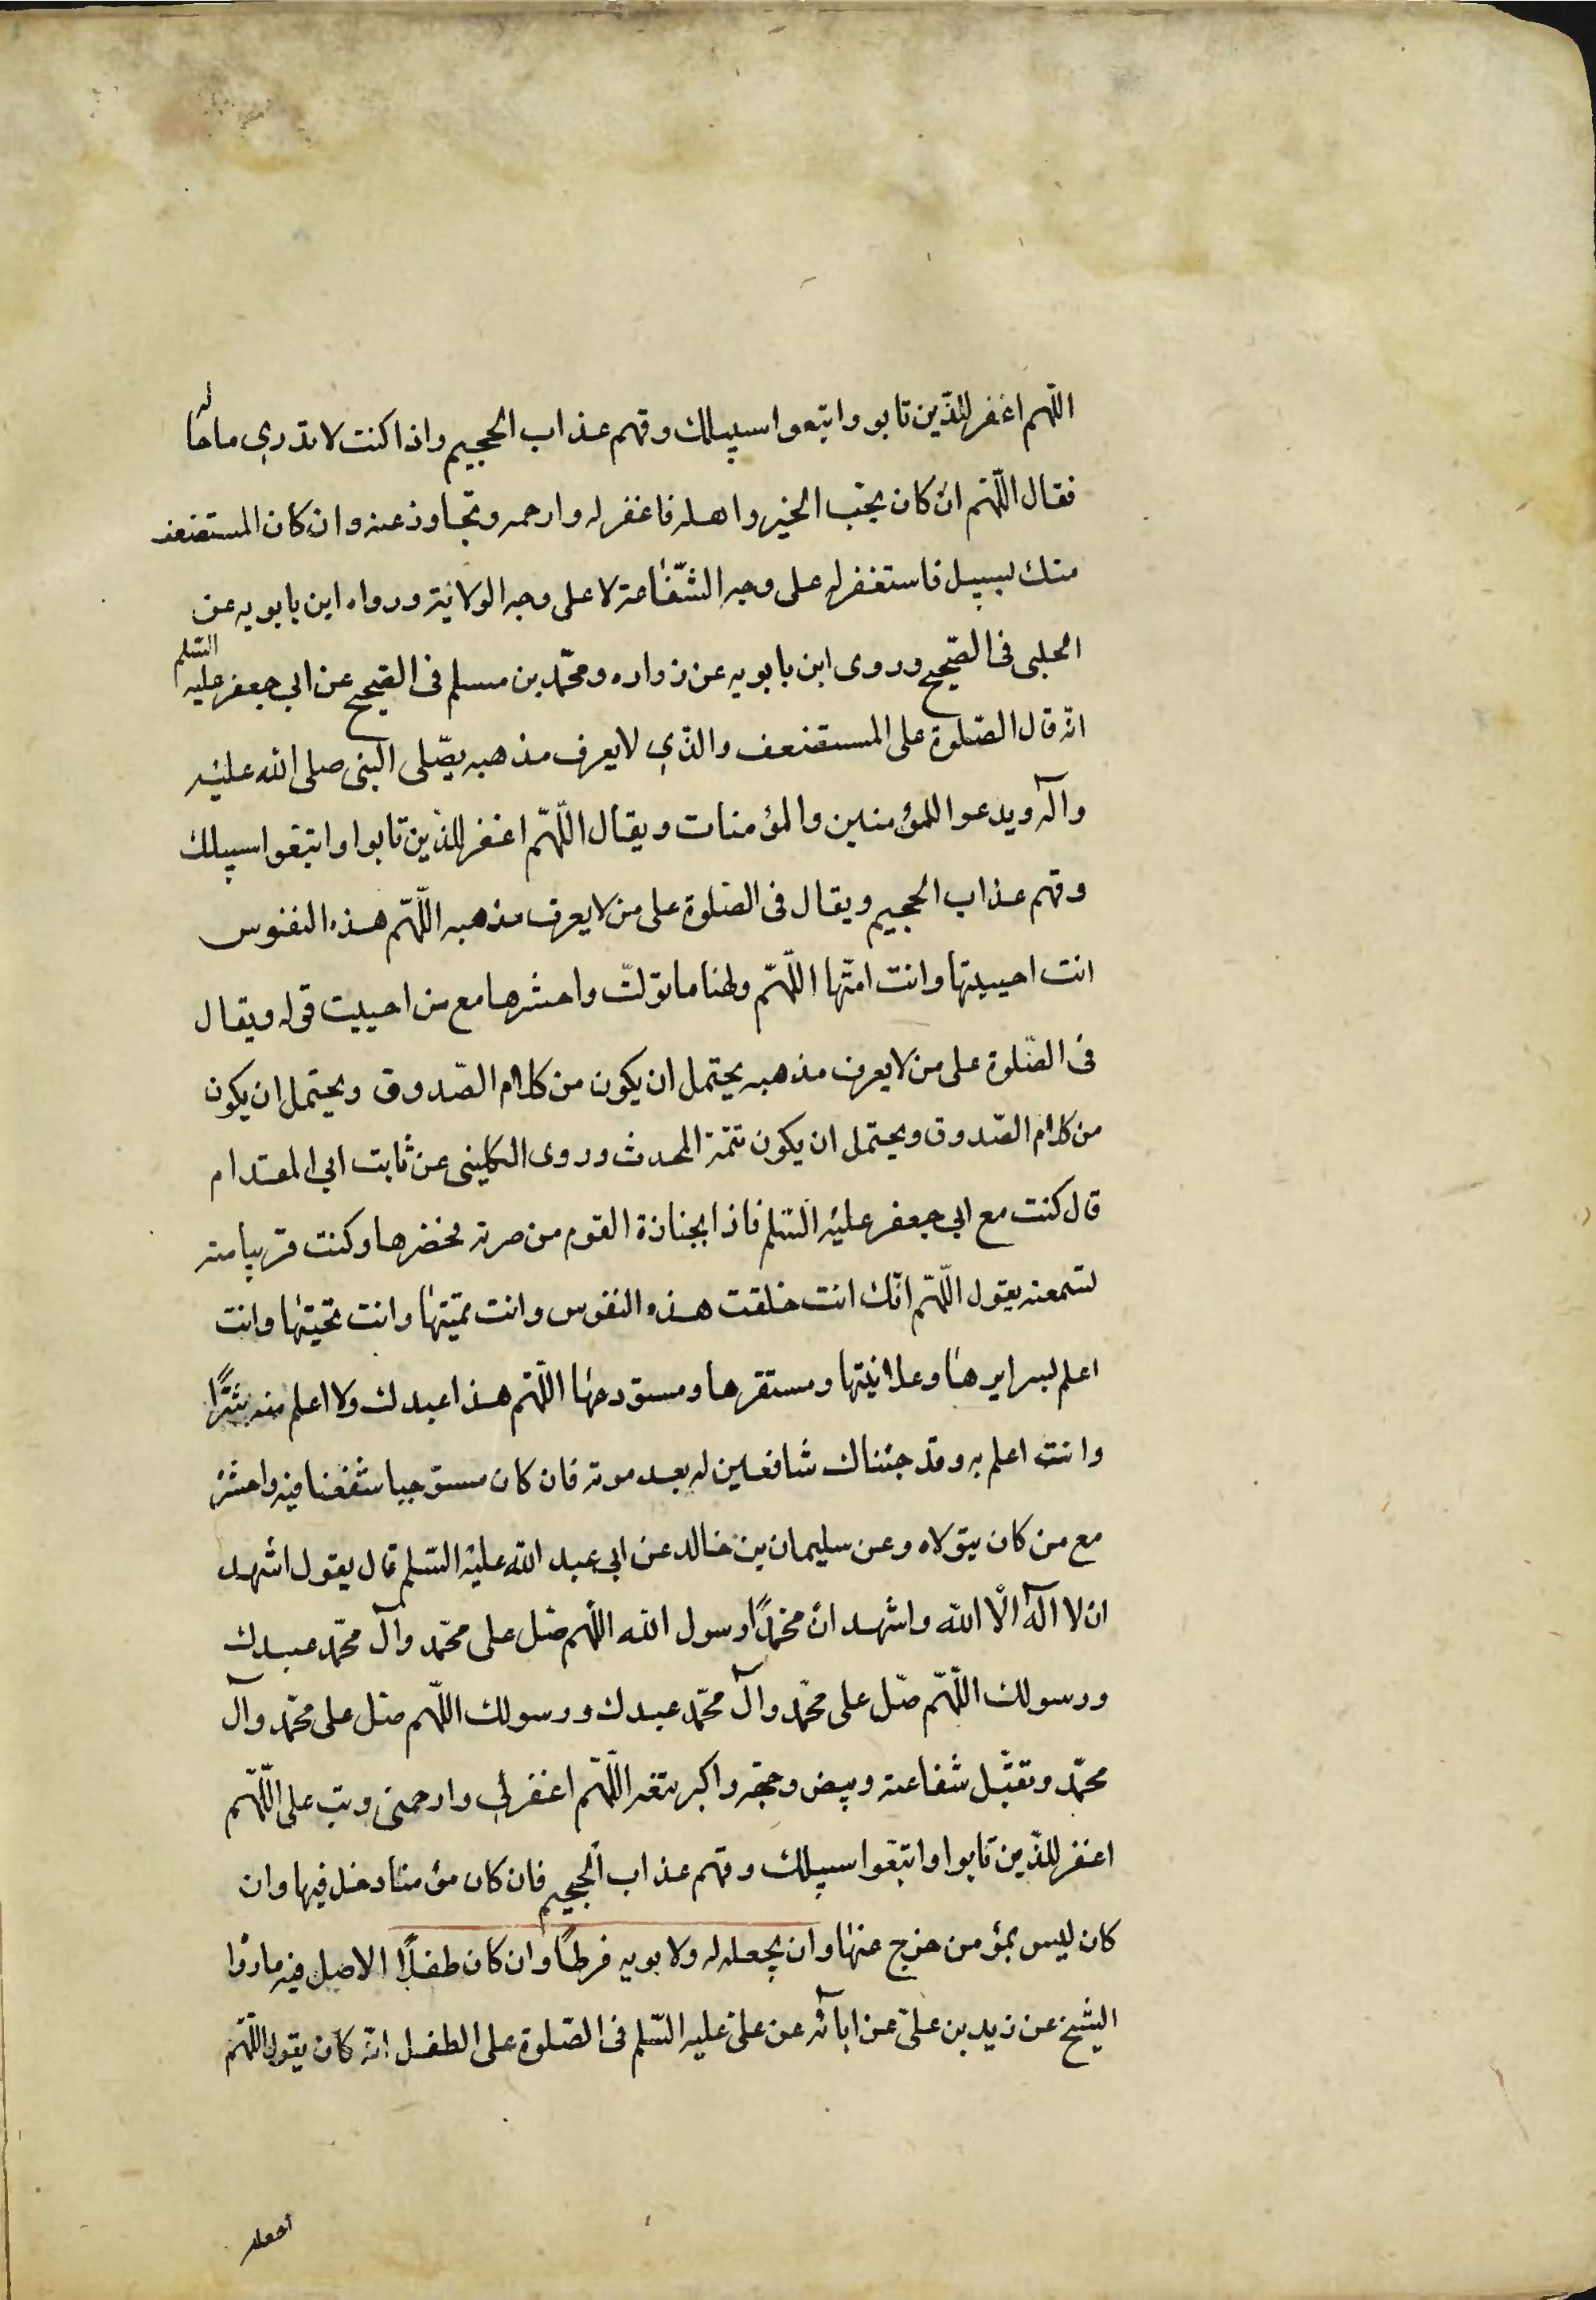 اللّهم اغفر للذّين تابو واتبعوا سبيلك وقهم عذاب الجحيم واذا كنت لا تدري ما حاله
فقال اللّهم ان كان يحبّ الخير واهله فاغفر له وارحمه وتجاوز عنه وان كان المستضعف
منك لبسبيل فاستغفر له على وجه الشّفاعة لا على وجه الولاية ورواه ابن بابويه عن
الحلبى فى الصّحيح وروى ابن بابويه عن زراره ومحمّد بن مسلم فى الصّحيح عن ابي جعفر عليه السّلم
انّه قال الصّلوة على المستضعف والذّي لا يعرف مذهبه يصّلى النبى صلى الله عليه
وآله ويدعوا للمؤمنين والمؤمنات ويقال اللّهمّ اغفر للذّين تابوا واتبعوا سبيلك
وقهم عذاب الجحيم ويقال فى الصّلوة على من لا يعرف مذهبه اللّهمّ هذه النفوس
انت احييتها وانت امتّها اللّهمّ ولهنا ما تولّت واحشرها مع من احببت قوله ويقال
فى الصّلوة على من لا يعرف مذهبه يحتمل ان يكون من كلام الصّدوق ويحتمل ان يكون
من كلام الصّدوق ويحتمل ان يكون تتمّة المحدث وروى الكلينى عن ثابت ابي المقدام
قال كنت مع ابي جعفر عليه السّلم فاذا بجنازة القوم من صرته فحضرها وكنت قريبا منه
لتسمعنه يقول اللّهمّ انّك انت خلقت هذه النفوس وانت تميتها وانت تحيتها وانت
اعلم لبسرايرها وعلانيتها ومستقرها ومستودعها اللّهم هذا عبدك ولا اعلم منه شرًّا
وانت اعلم به وقد جئناك شافعين له بعد موته فان كان مستوجبا شفعنا فيه واحشره
مع من كان يتولاه وعن سليمان بن خالد عن ابي عبد الله عليه السّلم قال يقول اشهد
ان لا اله الّا الله واشهد انّ محمّدًا رسول الله اللّهم صّل على محمّد وآل محمّد عبدك
ورسولك اللّهمّ صّل على محمّد وآل محمّد عبدك ورسولك اللّهم صّل على محمّد وآل
محمّد وتقبّل شفاعته وبيض وجهه واكبر تبعه اللّهم اغفر لي وارحمنى وتب على اللّهم
اغفر للذّين تابوا واتبعوا سبيلك وقهم عذاب الجحيم فان كان مؤمنا دخل فيها وان
كان ليس بمؤمن خرج عنها وان يجعله له ولابويه فرطًا وان كان طفلًا الاصل فيه مارواه
الشيخ عن زيد بن علىّ عن ابآئه عن علىّ عليه السّلم فى الصّلوة على الطفل انّه كان يقول اللّهمّ
اجعله